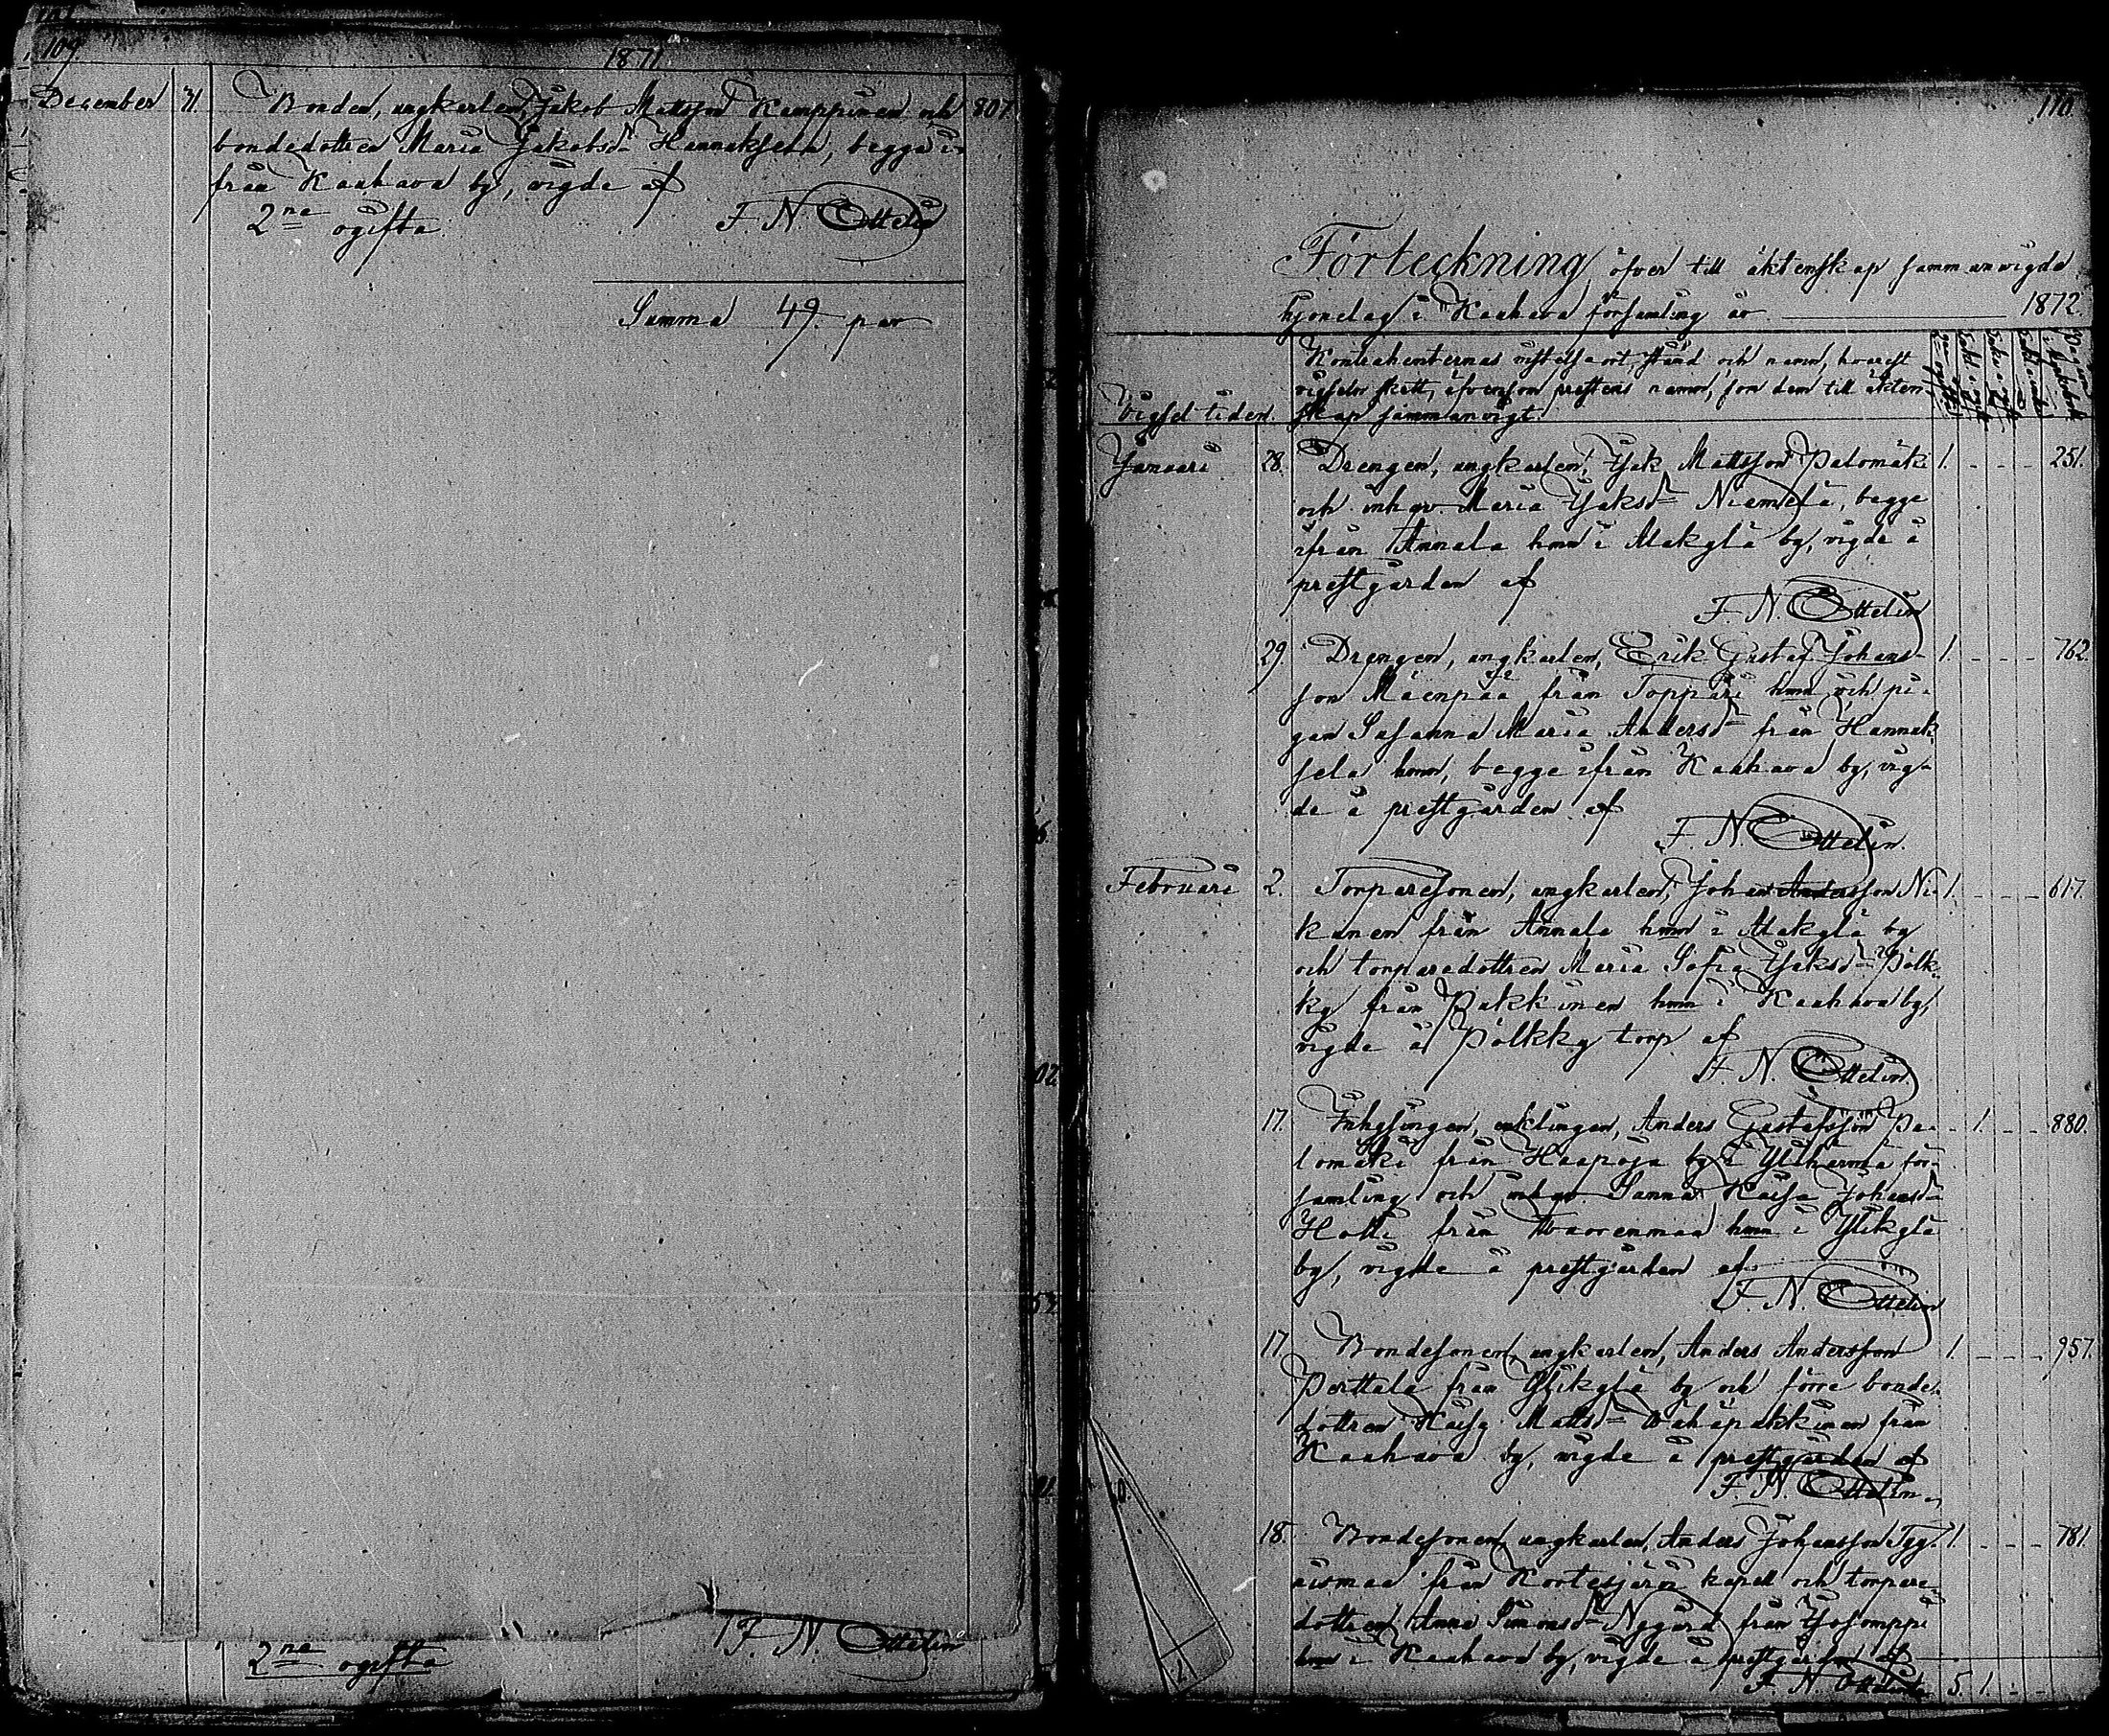 109.
1871.
December 31. Bonden, ungkarlen, Jakob Mattsson Kamppinen och 807.
bondedottren Maria Jakobsd:r Hannuksela, begge i-
från Kauhava by, vigde af
2ne ogifta. F. N. Ottelin
Summa 49. par
F. N. Ottelin
2ne ogifta
110.
Förteckning öfver till äktenskap sammanvigde
hjonelag i Kauhava församling år 1872.
Kontrahenternas vistelseort, stånd och namn, hvarest
vigseln skett, äfvensom prestens namn, som dem till äkten-
Vigseltiden. skap sammanvigt.
Januari 28. Drengen, ungkarlen, Jak. Mattsson Palomäki 1. - - - 251.
och inh. Maria Jaksd:r Niemelä, begge
ifrån Annala hmn i Alakylä by, vigde i
prestgården af
F. N. Ottelin
29. Drengen, ungkarlen, Erik Gustaf Johans- 1. - - - 762.
son Mäenpää från Toppari hmn och pi-
gan Susanna Maria Andersd:r från Hannuk-
sela hmn, begge ifrån Kauhava by, vig-
de i prestgården af
F. N. Ottelin.
Februari 2. Torparesonen, ungkarlen, Johan Andersson Ni- 1. - - - 617.
kunen från Annala hmn i Alakylä by
och torparedottren Maria Sofia Jaksd:r Pölk-
ky från Pukkinen hmn i Kauhava by,
vigde å Pölkky torp af
F. N. Ottelin.
17. Inhysingen, enklingen, Anders Gustafsson Pa- - 1. - - 880.
lomäki från Haapoja by i Ylihärmä för-
samling och Sanna Kaisa Johansd:r
Hotti från Vuorenmaa hmn i Ylikylä
by, vigde i prestgården af
F. N. Ottelin
17. Bondesonen, ungkarlen, Anders Andersson 1. - - - 957.
Perttula från Ylikylä by och förre bonde-
dottren Kaisa Mattsd:r Vähäpukkinen från
Kauhava by, vigde i prestgården af
F. N. Ottelin
18. Bondesonen, ungkarlen, Anders Johansson Tyy- 1. - - - 781.
nismaa från Kortesjärvi kapell och torpare-
dottren Anna Simonsd:r Nygård från Jososomppi
hmn i Kauhava by, vigde i prestgården af
F. N. Ottelin 5. 1. - -